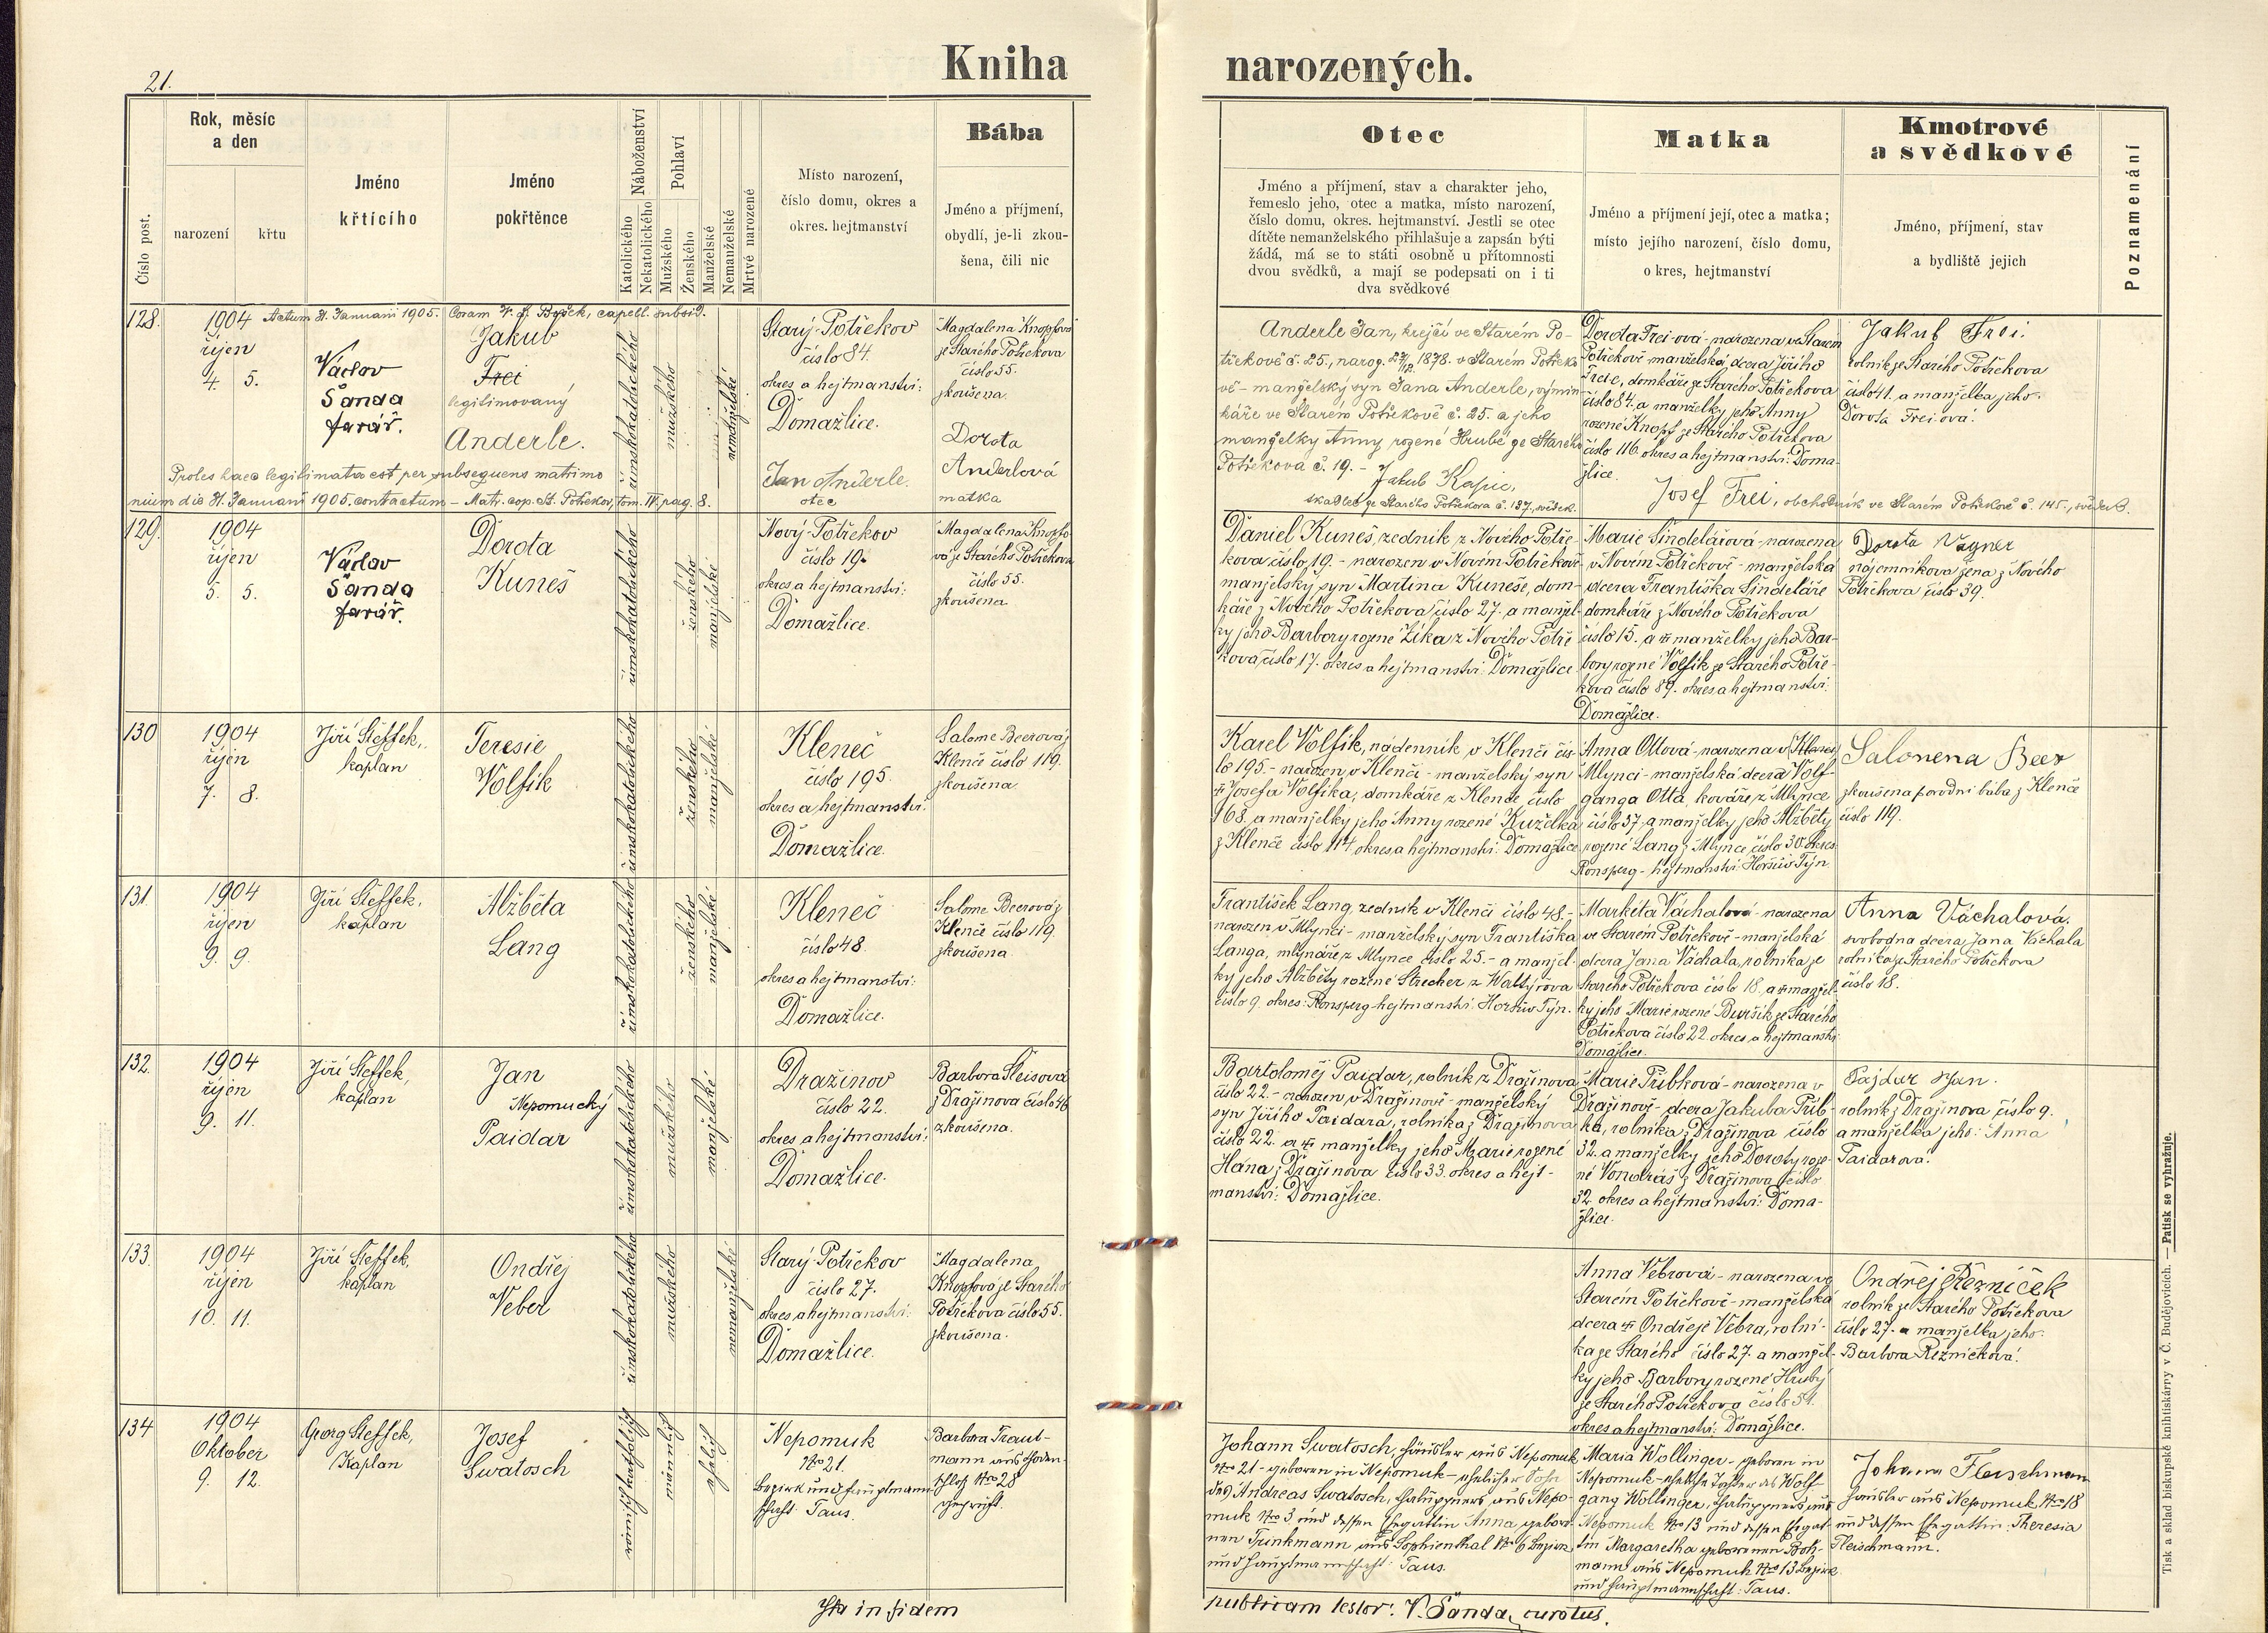 21.
Kniha narozených.
Číslo post.
Rok, měsíc
a den
narození
křtu
Jméno
křtícího
Jméno
pokřtěnce
Náboženství
Katolického
Nekatolického
Pohlaví
Mužského
Ženského
Manželské
Nemanželské
Mrtvě narozené
Místo narození,
číslo domu, okres a
okres. hejtmanství
Bába
Jméno a příjmení,
obydlí, je-li zkou-
šena, čili nic
Otec
Jméno a příjmení, stav a charakter jeho,
řemeslo jeho, otec a matka, místo narození,
číslo domu, okres. hejtmanství. Jestli se otec
dítěte nemanželského přihlašuje a zapsán býti
žádá, má se to státi osobně u přítomnosti
dvou svědků, a mají se podepsati on i ti
dva svědkové
Matka
Jméno a příjmení její, otec a matka;
místo jejího narození, číslo domu,
okres, hejtmanství
Kmotrové
a svědkové
Jméno, příjmení, stav
a bydliště jejich
Poznamenání
128.
1904
říjen
4. 5.
Actum 31. Januarii 1905. Coram capell. subsid.
Václav
Šanda
farář.
Jakub
Frei
legitimovaný
Anderle.
Proles haec legitimata est per subsequens matrimo
nium die 31. Januarii 1905. contractum – Matr. cop. St. Potřekov, tom. IV. pag. 8.
římskokatolického
mužského
nemanželské
Starý-Potřekov
číslo 84.
okres a hejtmanství:
Domažlice.
Jan Anderle.
otec
Magdalena Knopfová
ze Starého Potřekova
číslo 55.
zkoušena.
Dorota
Anderlová
matka
Anderle Jan, krejčí ve Starém Po-
třekově č. 25., naroz. 27/12. 1878. v Starém Potřeko
vě – manželský syn Jana Anderle, výmin
káře ve Starém Potřekově č. 25. a jeho
manželky Anny rozené Hrubé ze Starého
Potřekova č. 19. – Jakub Kapic,
ze Starého Potřekova č. 137., svědek.
Dorota Frei-ová – narozena ve Starém
Potřekově – manželská dcera Jiřího
Freie, domkáře ze Starého Potřekova
číslo 84. a manželky jeho Anny
rozené Knopf ze Starého Potřekova
číslo 116. okres a hejtmanství: Doma-
žlice.
Josef Frei, obchodník ve Starém Potřekově č. 145., svědek.
Jakub Frei.
rolník ze Starého Potřekova
číslo 41. a manželka jeho:
Dorota Frei-ová.
129.
1904
říjen
5. 5.
Václav
Šanda
farář.
Dorota
Kuneš
římskokatolického
ženského
manželské
Nový-Potřekov
číslo 19.
okres a hejtmanství:
Domažlice.
Magdalena Knopfo
vá ze Starého Potřekova
číslo 55.
zkoušena
Daniel Kuneš, zedník z Nového Potře-
kova číslo 19. – narozen v Novém Potřekově
manželský syn Martina Kuneše, dom-
káře z Nového Potřekova číslo 27. a manžel-
ky jeho Barbory rozené Zíka z Nového Potře
kova číslo 17. okres a hejtmanství: Domažlice
Marie Šindelářová – narozena
v Novém Potřekově – manželská
dcera Františka Šindeláře
domkáře z Nového Potřekova
číslo 15. a manželky jeho Bar-
bory rozené Volfík ze Starého Potře-
kova číslo 89. okres a hejtmanství:
Domažlice.
Dorota Vagner
nájemníkova žena z Nového
Potřekova číslo 39.
130
1904
říjen
7. 8.
Jiří Steffek,
kaplan
Teresie
Volfík
římskokatolického
ženského
manželské
Kleneč
číslo 195.
okres a hejtmanství:
Domažlice.
Salome Beerová z
Klenče číslo 119.
zkoušena
Karel Volfík, nádenník v Klenči čís-
lo 195. – narozen v Klenči – manželský syn
Josefa Volfíka, domkáře z Klenče číslo
168. a manželky jeho Anny rozené Kuželka
z Klenče číslo 114. okres a hejtmanství: Domažlice
Anna Ottová – narozena v
Mlýnci – manželská dcera Wolf-
ganga Otta, kováře z Mlýnce
číslo 37. a manželky jeho Alžběty
rozené Lang z Mlýnce číslo 30. okres
Ronsperg – hejtmanství: Horšův Týn.
Salomena Beer
zkoušena porodní bába z Klenče
číslo 119.
131.
1904
říjen
9. 9.
Jiří Steffek,
kaplan
Alžběta
Lang
římskokatolického
ženského
manželské
Kleneč
číslo 48
okres a hejtmanství:
Domažlice.
Salome Beerová z
Klenče číslo 119.
zkoušena.
František Lang, zedník v Klenči číslo 48. –
narozen v Mlýnci – manželský syn Františka
Langa, mlynáře z Mlýnce číslo 25. – a manžel-
ky jeho Alžběty rozené Strecher z Waltýřova
číslo 9. okres: Ronsperg hejtmanství: Horšův Týn.
Markéta Váchalová – narozena
ve Starém Potřekově – manželská
dcera Jana Váchala, rolníka ze
Starého Potřekova číslo 18. a manžel-
ky jeho Marie rozené Buršík ze Starého
Potřekova číslo 22. okres a hejtmanství
Domažlice.
Anna Váchalová.
svobodna dcera Jana Váchala
rolníka ze Starého Potřekova
číslo 18.
132.
1904
říjen
9. 11.
Jiří Steffek,
kaplan
Jan
Nepomucký
Paidar
římskokatolického
mužského
manželské
Dražinov
číslo 22.
okres a hejtmanství:
Domažlice.
Barbora Sleisová
z Dražinova číslo 46
zkoušena.
Bartoloměj Paidar, rolník z Dražinova
číslo 22. – narozen v Dražinově – manželský
syn Jiřího Paidara, rolníka z Dražinova
číslo 22. a manželky jeho Marie rozené
Hána z Dražinova číslo 33. okres a hejt-
manství: Domažlice.
Marie Přibková – narozena v
Dražinově – dcera Jakuba Přib-
ka, rolníka z Dražinova číslo
32. a manželky jeho Doroty roze-
né Vondráš z Dražinova číslo
32. okres a hejtmanství: Doma-
žlice.
Pajdar Jan.
rolník z Dražinova číslo 9.
a manželka jeho: Anna
Paidarová.
133.
1904
říjen
10. 11.
Jiří Steffek,
kaplan
Ondřej
Veber
římskokatolického
mužského
nemanželské
Starý-Potřekov
číslo 27.
okres a hejtmanství:
Domažlice.
Magdalena
Knopfová ze Starého
Potřekova číslo 55.
zkoušena.
Anna Vebrová – narozena ve
Starém Potřekově – manželská
dcera Ondřeje Vebra, rolní-
ka ze Starého číslo 27. a manžel-
ky jeho Barbory rozené Hrubý
ze Starého Potřekova číslo 51.
okres a hejtmanství: Domažlice.
Ondřej Řezníček
rolník ze Starého Potřekova
číslo 27. a manželka jeho:
Barbora Řezníčková.
134
1904
Oktober
9. 12.
Georg Steffek,
Kaplan
Josef
Swatosch
römisch katholisch
männlich
ehelich
Nepomuk
Nro 21.
Bezirk und Hauptmann-
schaft: Taus.
Barbara Traut-
mann aus Hoden-
schloß Nro 28
geprüft.
Johann Swatosch, Häusler aus Nepomuk
Nro 21 – geboren in Nepomuk – ehelicher Sohn
des Andreas Swatosch, Chaluppners aus Nepo-
muk Nro 5 und dessen Ehegattin Anna gebore-
nen Trinkmann aus Sophienthal Nro 6 Bezirk
und Hauptmannschaft: Taus.
Maria Wollinger – geboren in
Nepomuk – eheliche Tochter des Wolf-
gang Wollinger, Chaluppners aus
Nepomuk Nro 13 und dessen Ehegat-
tin Margaretha geborenen Both-
mann aus Nepomuk Nro 13 Bezirk
und Hauptmannschaft: Taus.
Johann Fleischmann
Häusler aus Nepomuk Nro 18
und dessen Ehegattin: Theresia
Fleischmann.
Ita in fidem publicam testor: V. Šanda, curatus.
Tisk a sklad biskupské knihtiskárny v Č. Budějovicích. — Patisk se vyhražuje.